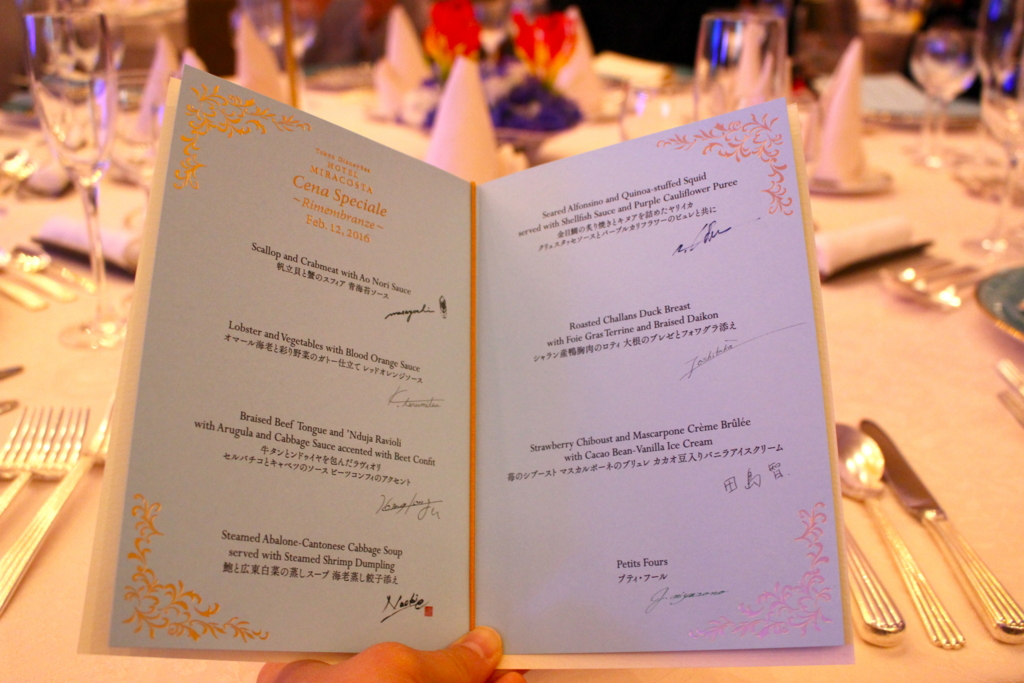 Tokyo DisneySea
HOTEL
MIRACOSTA
Cena Speciale
~Rimembranze~
Feb. 12, 2016
Scallop and Crabmeat with Ao Nori Sauce
帆立貝と蟹のスフィア 青海苔ソース
Lobster and Vegetables with Blood Orange Sauce
オマール海老と彩り野菜のガトー仕立て レッドオレンジソース
Braised Beef Tongue and 'Nduja Ravioli
with Arugula and Cabbage Sauce accented with Beet Confit
牛タンとンドゥイヤを包んだラヴィオリ
セルバチコとキャベツのソース ビーツコンフィのアクセント
Steamed Abalone-Cantonese Cabbage Soup
served with Steamed Shrimp Dumpling
鮑と広東白菜の蒸しスープ 海老蒸し餃子添え
Seared Alfonsino and Quinoa-stuffed Squid
served with Shellfish Sauce and Purple Cauliflower Puree
金目鯛の炙り焼きとキヌアを詰めたヤリイカ
クリュスタッセソースとパープルカリフラワーのピュレと共に
Roasted Challans Duck Breast
with Foie Gras Terrine and Braised Daikon
シャラン産鴨胸肉のロティ 大根のブレゼとフォワグラ添え
Strawberry Chiboust and Mascarpone Crème Brûlée
with Cacao Bean-Vanilla Ice Cream
苺のシブースト マスカルポーネのブリュレ カカオ豆入りバニラアイスクリーム
田島
Petits Fours
プティ・フール